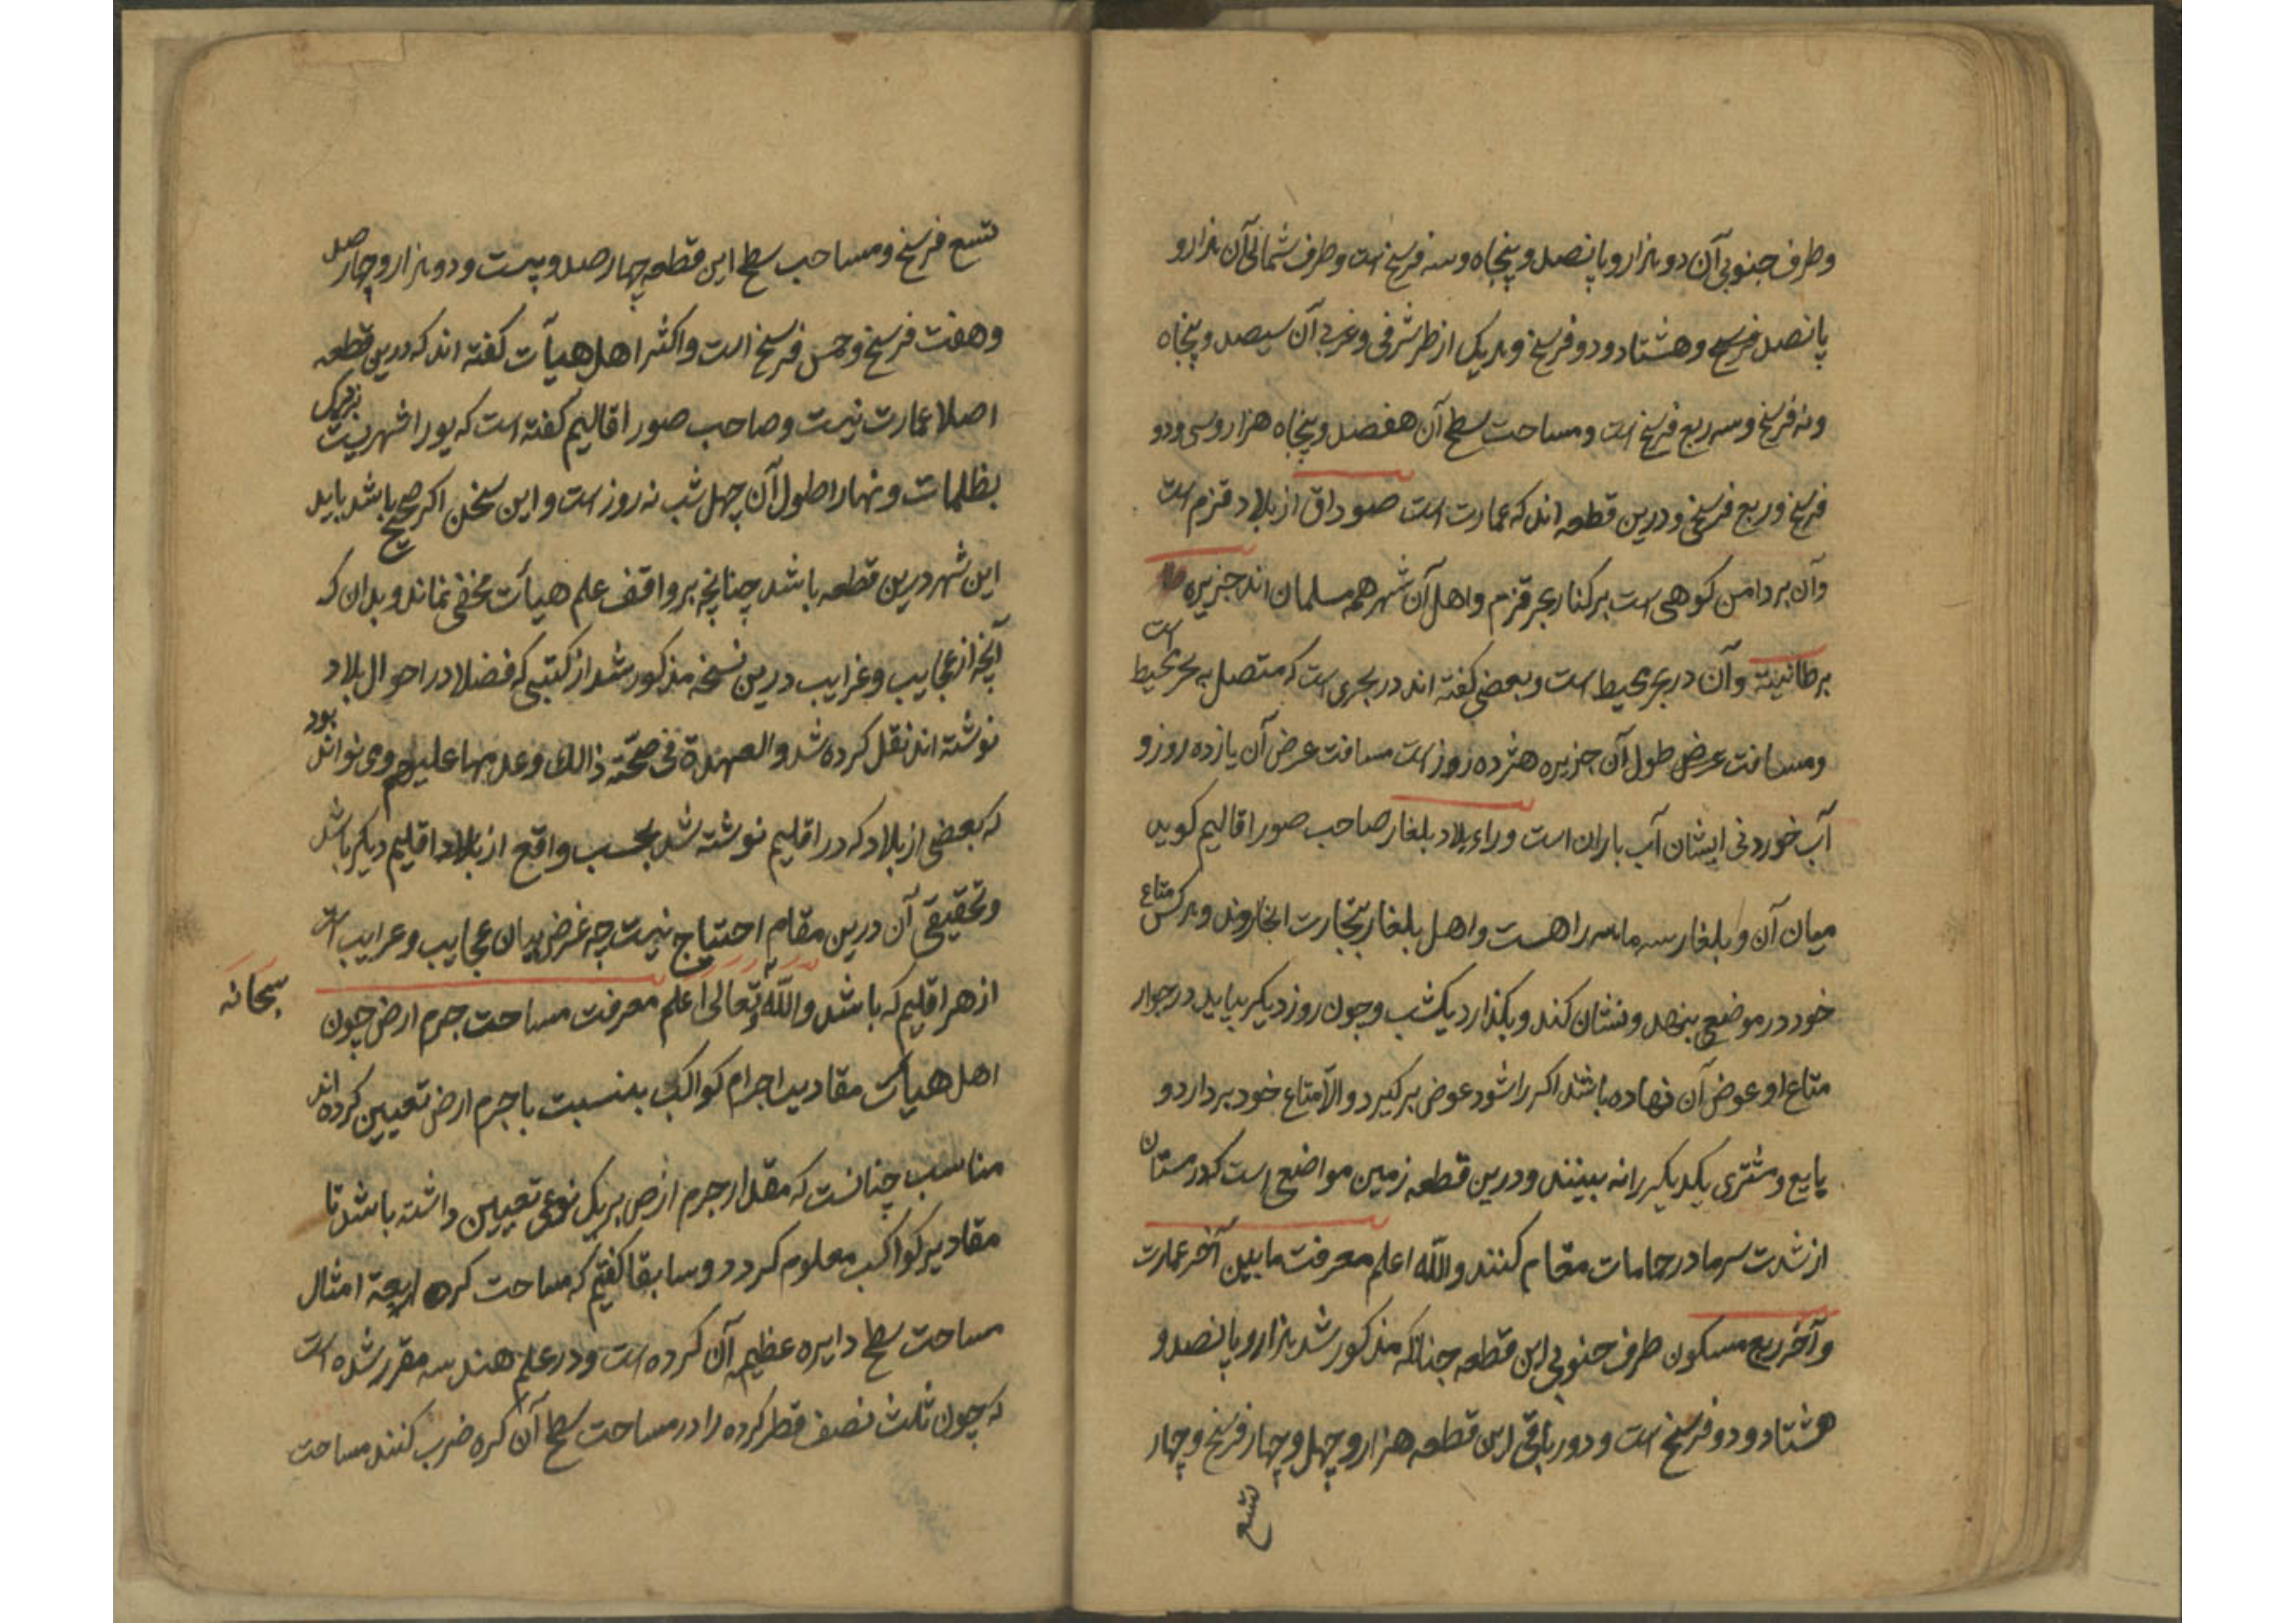 وطرف جنوبی آن دو هزار و پانصد و پنجاه و سه فرسخ است وطرف شمالی آن هزار و
پانصد فرسخ و هشتاد و دو فرسخ و هر یک از طر شرقی و غربی آن سیصد و پنجاه
و نه فرسخ و سه ربع فرسخ است و مساحت سطح آن هفصد و پنجاه هزار و سی و دو
فرسخ و ربع فرسخ و درین قطعه اند که عمارت است صوداق از بلاد قزم است
وآن بر دامن کوهی است بر کنار بحر قزم و اهل آن شهر همه مسلمان اند جزیره
برطانیته وآن در بحر محیط است و بعضی کفته اند در بحری است که متصل به بحر محیط است
و مسافت عرض طول آن جزیره هژده روز است مسافت عرض آن یازده روز و
آب خوردنی ایشان آب باران است وراء بلاد بلغار صاحب صور اقالیم کوید
میان آن و بلغار سه ماهه راهست و اهل بلغار بتجارت انجا روند و هر کس متاع
خود در موضعی بنهد و نشان کند و بکذارد یکشب و چون روز دیکر بیاید در جوار
متاع او عوض آن نهاده باشند اکر راشود عوض برکیرد و الا متاع خود بردارد و
بایع و مشتری یکدیکر را نه بینند و درین قطعه زمین مواضع است که در مستان
از شدت سرما در حامات مقام کنند والله اعلم معرفت مابین آخر عمارت
و آخر ربع مسکون طرف جنوبی این قطعه چنانکه مذکور شد هزار و پانصد و
هشتاد و دو فرسخ است و دور باقی این قطعه هزار و چهل و چهار فرسخ و چهار
تسع
تسع فرسخ و مساحب سطح این قطعه چهار صد و بیست و دو هزار و چهار صد
و هفت فرسخ و خمس فرسخ است و اکثر اهل هیآت کفته اند که درین قطعه
اصلا عمارت نیست و صاحب صور اقالیم کفته است که یورا شهریست نزدیک
بظلمات و نهار اطول آن چهل شبانه روز است و این سخن اکر صحیح باشد باید
این شهر درین قطعه باشد چنانچه بر واقف علم هیآت مخفی نماند و بدان که
آنچه از عجایب و غرایب درین نسخه مذکور شد از کتبی که فضلا در احوال بلاد
نوشته اند نقل کرده شد و العهدة فی صحته ذالک و عدمها علیهم و می تواند بود
که بعضی از بلاد که در اقلیم نوشته شد بحسب واقع از بلاد اقلیم دیکر باشد
و تحقیقی آن درین مقام احتیاج نیست چه غرض بیان عجایب و غرایب است
از هر اقلیم که باشد والله سبحانه و تعالی اعلم معرفت مساحت جرم ارض چون
اهل هیآت مقادیر اجرام کواکب بنسبت با جرم ارض تعیین کرده اند
مناسب چنانست که مقدار جرم ارض بر یک نوعی تعیین داشته باشد تا
مقادیر کواکب معلوم کردد و سابقا کفتیم که مساحت کره اربعة امثال
مساحت سطح دایره عظیم آن کرده است و در علم هندسه مقرر شده است
که چون ثلث نصف قطر کرده را در مساحت سطح آن کره ضرب کنند مساحت